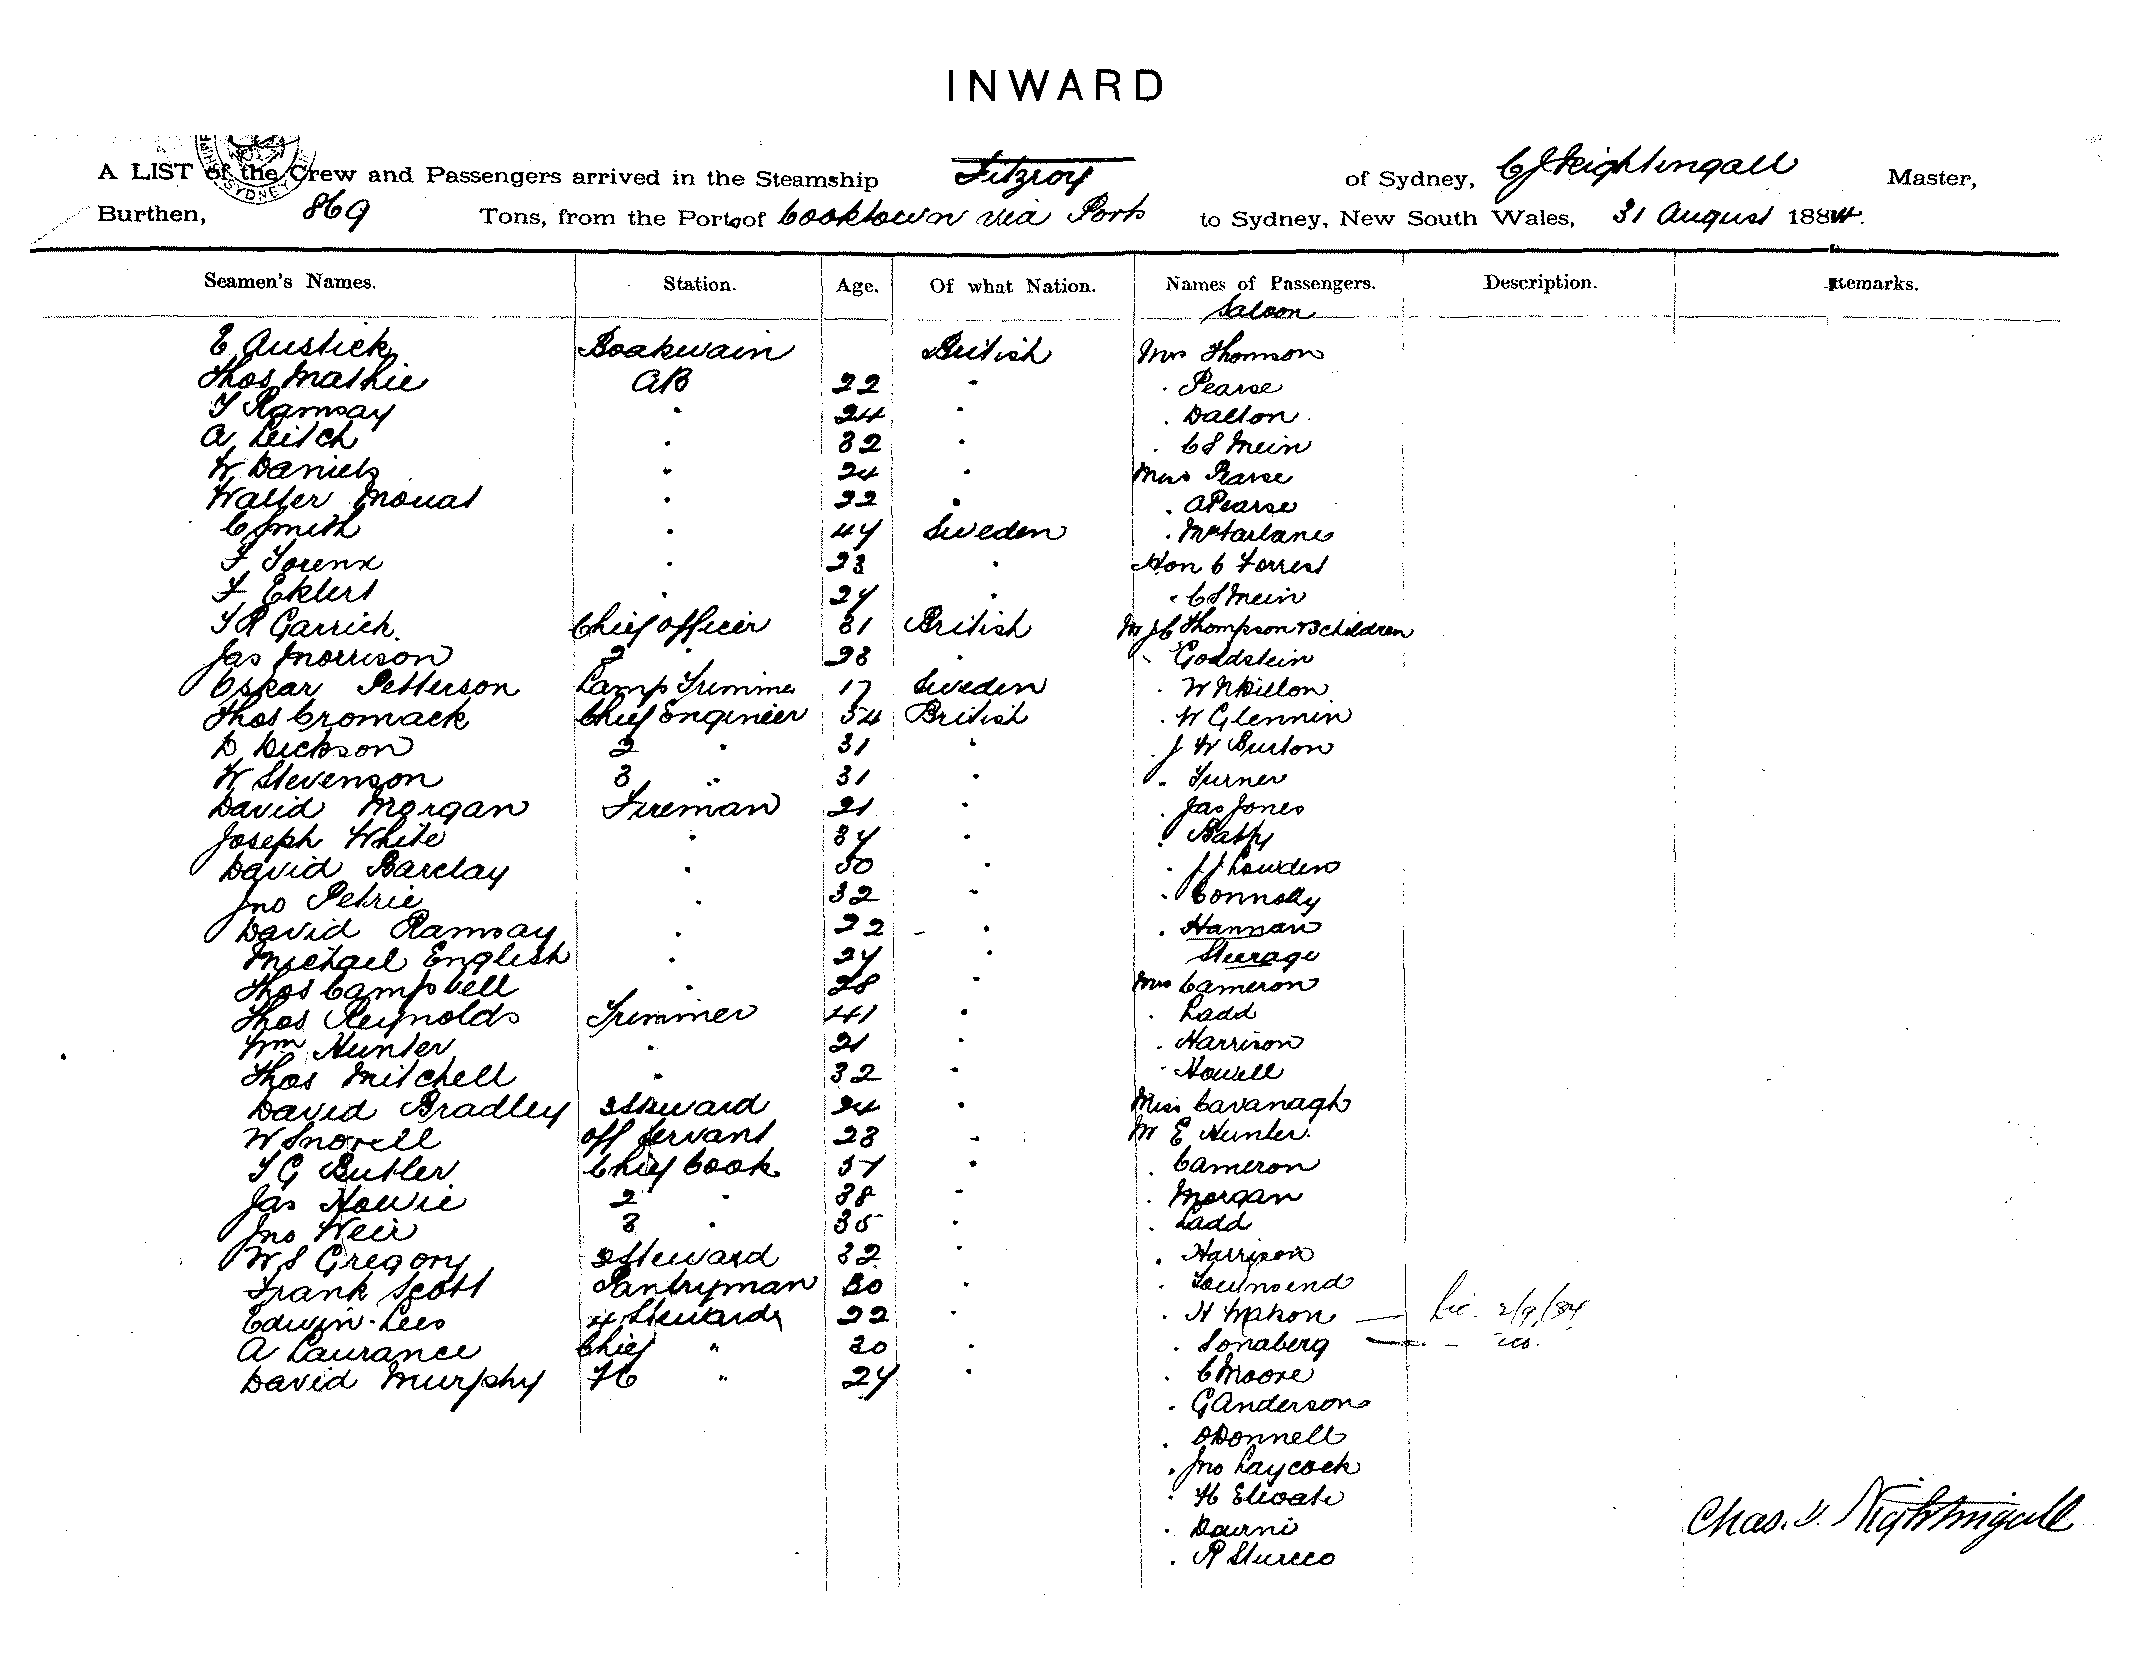 INWARD
A LIST of the Crew and Passengers arrived in the Steamship Fitzroy of Sydney, C J Nightingall Master,
Burthen, 869 Tons, from the Port of Cooktown via Ports to Sydney, New South Wales, 31 August 1884.
Seamen's Names. Station. Age. Of what Nation. Names of Passengers. Description. Remarks.
Saloon
E Austick Boatswain British Mrs Thomson
Thos Mathie AB 22 " " Pearse
T Ramsay " 24 " " Dalton
A Leitch " 32 " " C S Mein
W Daniels " 24 " Miss Pearse
Walter Mouat " 22 " " A Pearse
C Smith " 47 Sweden " McFarlane
F Lorenx " 23 " Hon C Forrest
F Eklert " 27 " " C S Mein
T R Garrick Chief Officer 31 British Mr J C Thompson & 3 children
Jas Morrison 2 " 28 " " Goldstein
Oskar Petterson Lamp Trimme 17 Sweden " W N Dillon
Thos Cromack Chief Engineer 34 British " W Glennin
D Dickson 2 " 31 " " J W Burton
W Stevenson 3 " 31 " " Turner
David Morgan Fireman 21 " " Jas Jones
Joseph White " 37 " "
David Barclay " 30 " " J J Lowden
Jno Petrie " 32 " " Connolly
David Ramsay " 22 " " Hannan
Michael English " 27 " Steerage
Thos Campbell " 28 " Mrs Cameron
Thos Reynolds Trimmer 41 " " Ladd
Wm Hunter " 21 " " Harrison
Thos Mitchell " 32 " " Howell
David Bradley 2 Steward 24 " Miss Cavanagh
W Snorell off Servant 23 " Mr E Hunter
T G Butler Chief Cook 37 " " Cameron
Jas Howie 2 " 38 " " Morgan
Jno Weir 3 " 35 " " Ladd
W S Gregory 3 Steward 32 " " Harrison
Frank Scott Pantryman 30 " " Townsend
Edwin Lees 4 Steward 22 " " H Mahon — 2/9/84
A Laurance Chief " 30 " " Sonaberg — do.
David Murphy FC " 27 " " C Moore
" G Anderson
" O'Donnell
" Jno Laycock
" H
"
" R
Chas. J. Nightingall